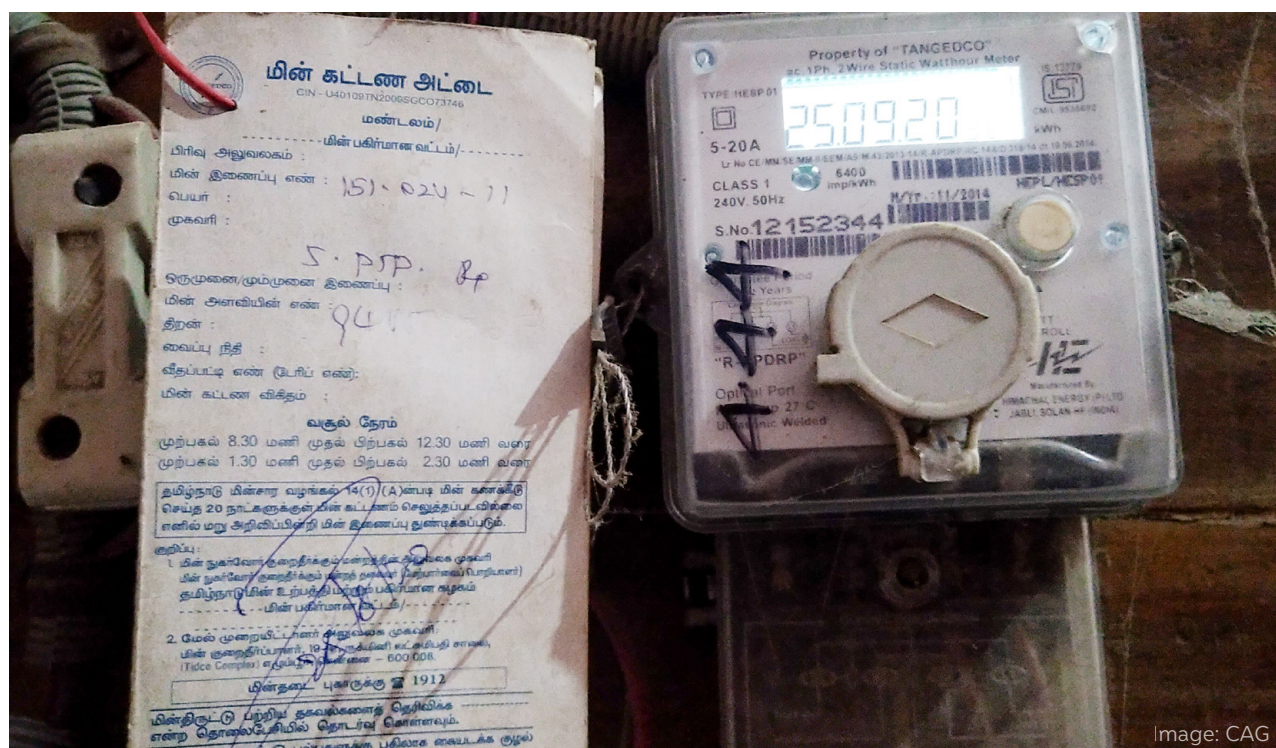 மின் கட்டண அட்டை
CIN-U40109TN2009SGC073746
மண்டலம்/
மின் பகிர்மான வட்டம்/
பிரிவு அலுவலகம் :
மின் இணைப்பு எண் : 151-024-11
பெயர் :
முகவரி :
ஒருமுனை/மும்முனை இணைப்பு :
மின் அளவியின் எண் :
திறன் :
வைப்பு நிதி :
வீதப்பட்டி எண் (டேரிப் எண்):
மின் கட்டண விகிதம் :
வசூல் நேரம்
முற்பகல் 8.30 மணி முதல் பிற்பகல் 12.30 மணி வரை
முற்பகல் 1.30 மணி முதல் பிற்பகல் 2.30 மணி வரை
தமிழ்நாடு மின்சார வழங்கல் 14(1) (A)ன்படி மின் கணக்கீடு
செய்த 20 நாட்களுக்குள் மின் கட்டணம் செலுத்தப்படவில்லை
எனில் மறு அறிவிப்பின்றி மின் இணைப்பு துண்டிக்கப்படும்.
குறிப்பு :
1. மின் நுகர்வோர் குறைதீர்க்கும் மன்றத்தின் அலுவலக முகவரி
மின் நுகர்வோர் குறைதீர்க்கும் மன்றத் தலைவர் (மேற்பார்வைப் பொறியாளர்)
தமிழ்நாடு மின் உற்பத்தி மற்றும் பகிர்மான கழகம்
மின் பகிர்மான வட்டம்/
2. மேல் முறையீட்டாளர் அலுவலக முகவரி:
மின் குறைதீர்ப்பாளர், 19 ருக்மினி லட்சுமிபதி சாலை,
(Tidco Complex) எழும்பூர், சென்னை – 600 008.
மின்தடை புகாருக்கு ☎ 1912
மின்திருட்டு பற்றிய தகவல்களைத் தெரிவிக்க
என்ற தொலைபேசியில் தொடர்வு கொள்ளவும்.
Property of "TANGEDCO"
ac, 1Ph, 2Wire Static Watthour Meter
TYPE:HESP01
IS 13779
25.09.20
kWh
5-20A
CLASS 1
6400
imp/kWh
240V. 50Hz
HEPL/HESP01
M/Yr.:11/2014
S.No.12152344
Years
"R-APDRP"
Optical Port
27°C
Ultrasonic Welded
HE
Manufactured By
HIMACHAL ENERGY (P) LTD
JABLI, SOLAN-HP (INDIA)
Image: CAG